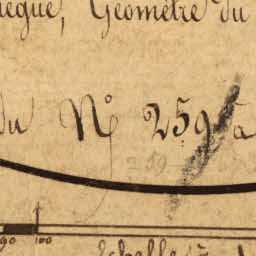 Géomètre du
du N° 259 à
259
90 100
Echelle